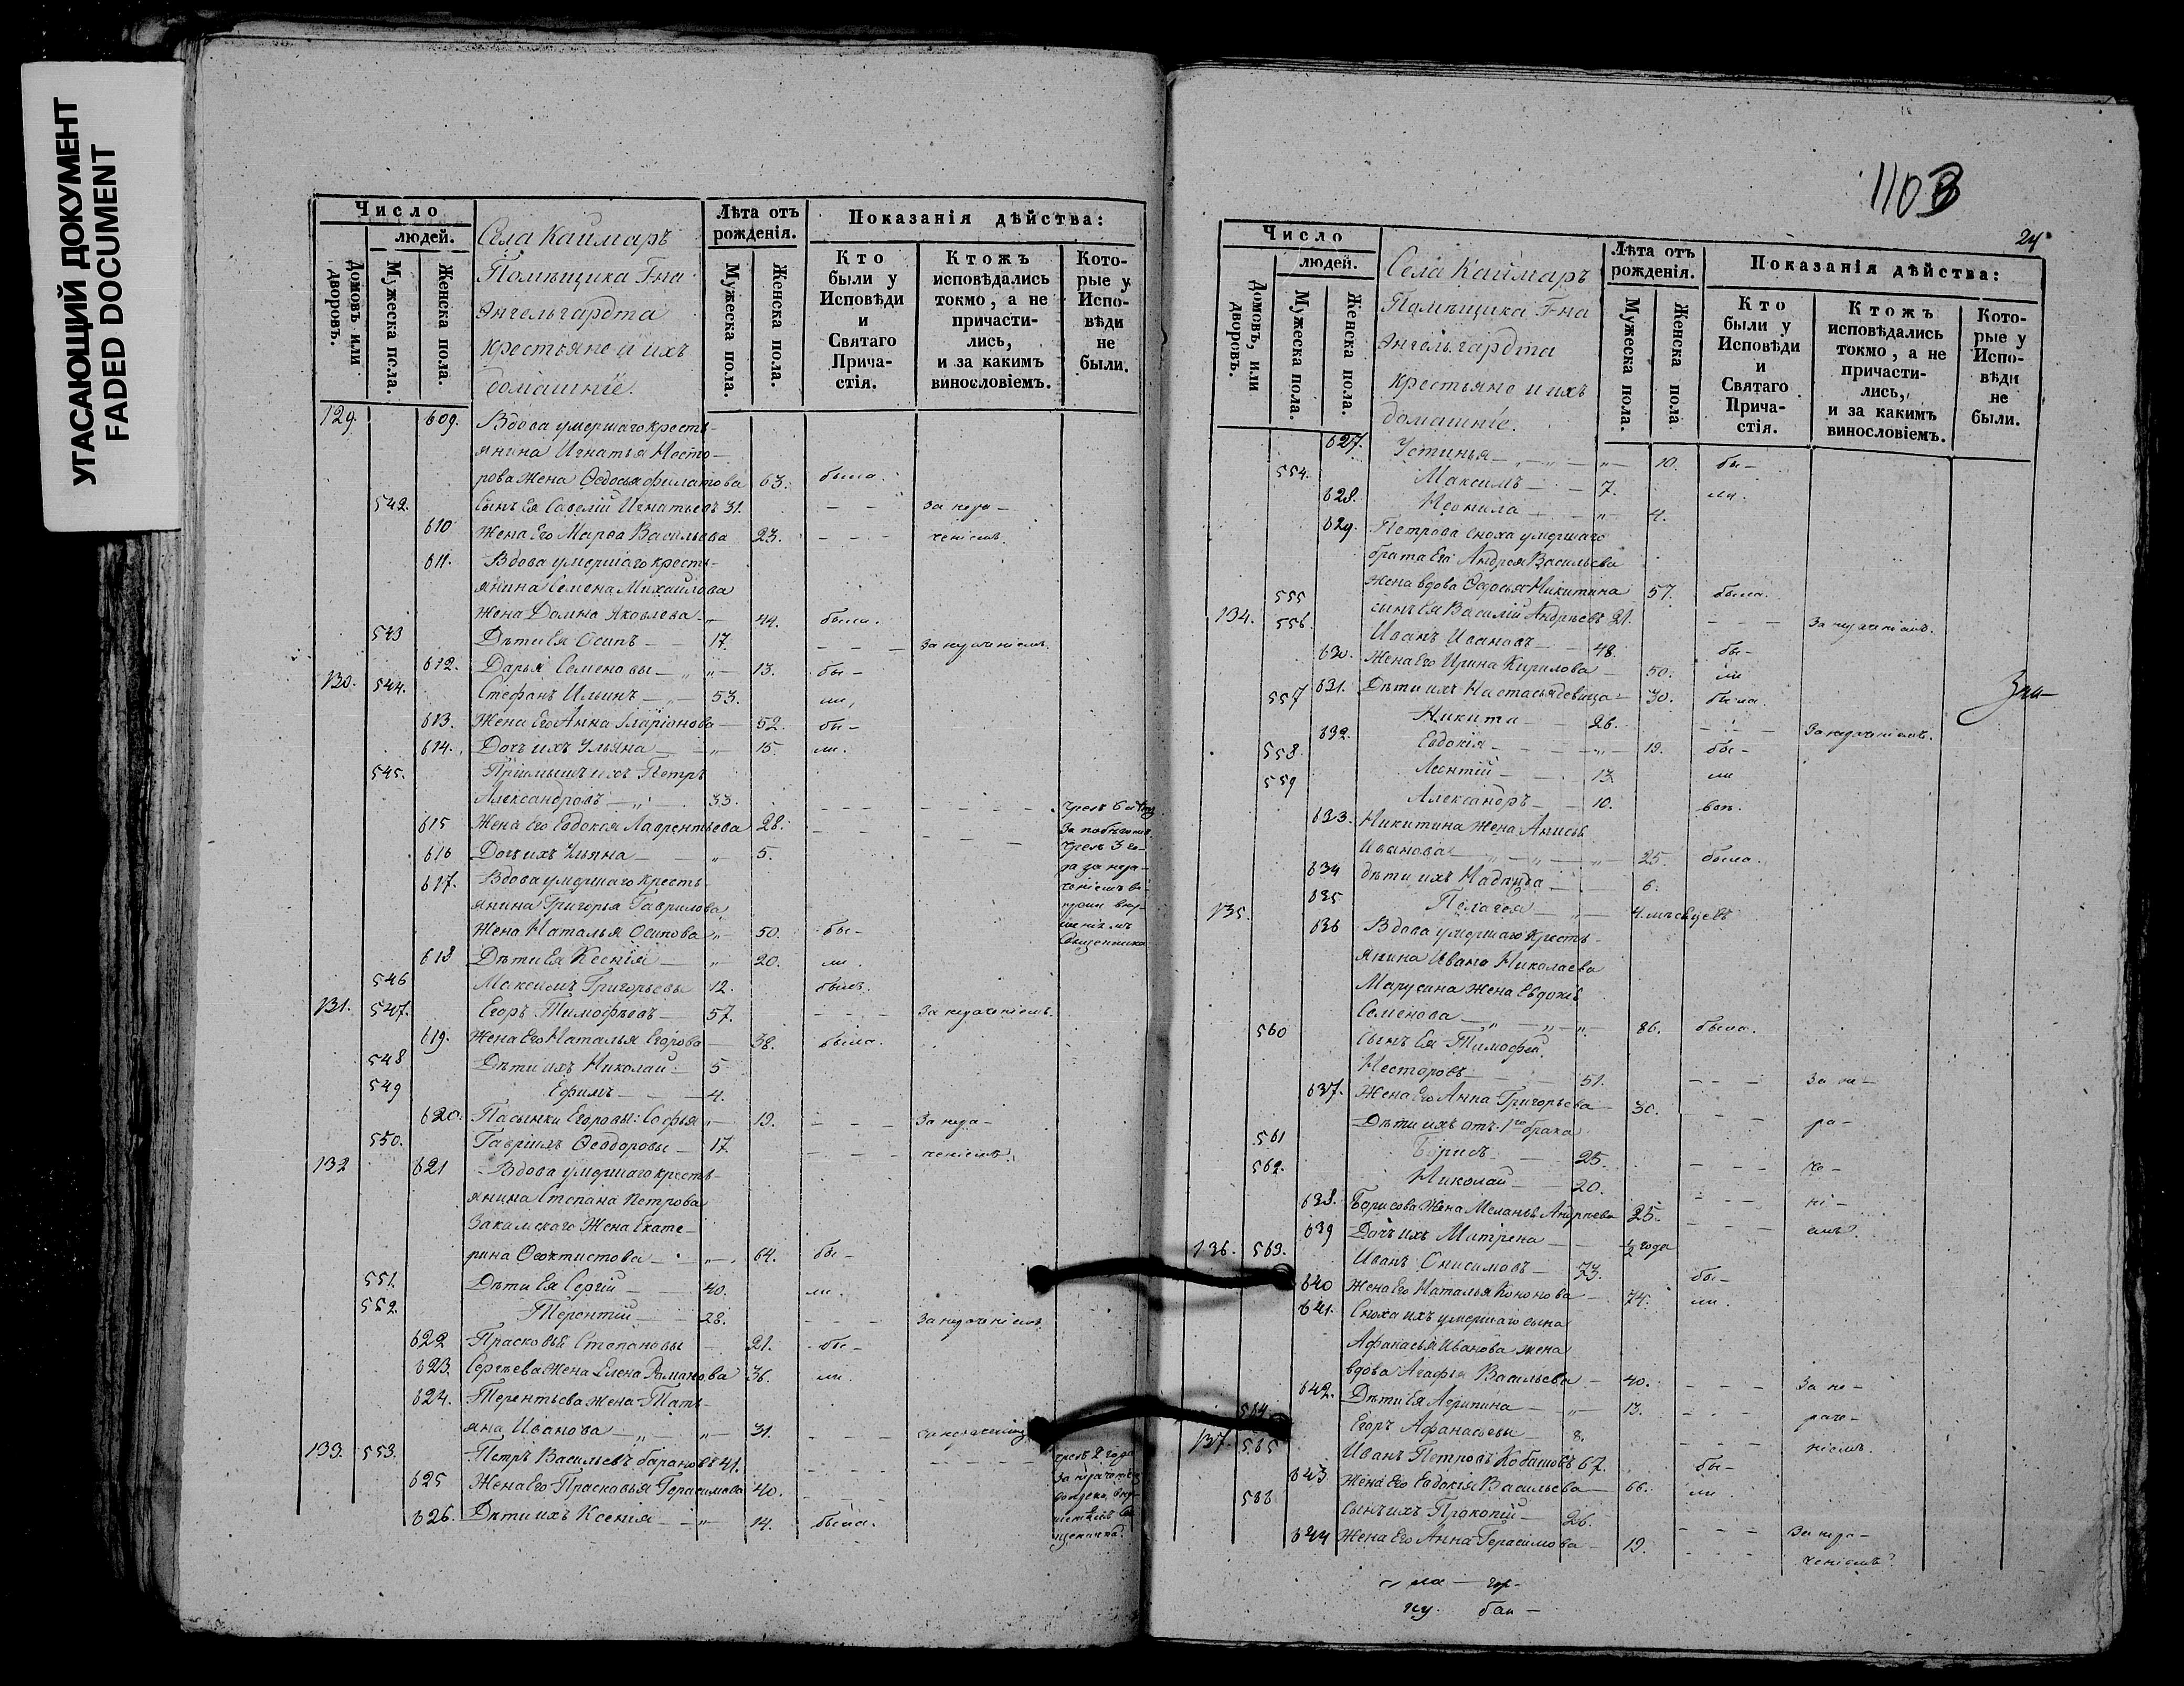 УГАСАЮЩИЙ ДОКУМЕНТ
FADED DOCUMENT
Число
людей.
Домовъ или дворовъ.
Мужеска пола.
Женска пола.
Села Каймаръ
Помѣщика Г-на
Энгельгардта
крестьяне и ихъ
домашніе.
Лѣта отъ рожденія.
Мужеска пола.
Женска пола.
Показанія дѣйства:
Кто были у Исповѣди и Святаго Прича-стія.
Ктожъ исповѣдались токмо, а не причасти-лись, и за какимъ винословіемъ.
Кото-рые у Испо-вѣди не были.
129. 609. Вдова умершаго кресть-
янина Игнатья Несто-
рова жена Ѳедосья Филатова 63. была.
542. Сынъ Ея Савелій Игнатьевъ 31. - - За нера-
610 Жена Его Марѳа Васильева 23. - - - ченіемъ.
611. Вдова умершаго кресть-
янина Семена Михайлова
жена Домна Яковлева - „ 44. была.
543 Дѣти Ея Осипъ - 17. - - - За нераченіемъ.
612. Дарья Семеновы - „ „ - 13. бы-
130. 544. Стефанъ Ильинъ - „ 53. ли,
613. Жена Его Анна Иларіонова - 52. бы-
614. Дочь ихъ Ульяна - „ 15. ли.
545. Пріимышъ ихъ Петръ
Александровъ - „ 33. - - - - - - - чрезъ 6 лѣтъ
615 Жена Его Евдокія Лаврентьева 28. - - - - - - За побѣгомъ.
616 Дочь ихъ Ульяна - „ 5. чрезъ 3 го-
да за нера-
617. Вдова умершаго кресть-
ченіемъ во-
янина Григорья Гаврилова
преки вну-
Жена Наталья Осипова „ - 50. бы-
шеніемъ
Священника
618 Дѣти Ея Ксенія - „ 20. ли.
546 Максимъ Григорьевы 12. былъ.
131. 547. Егоръ Тимофѣевъ - 57. - - - За нераченіемъ.
619. Жена Его Наталья Егорова - 38. была.
548 Дѣти ихъ Николай - 5
549 Ефимъ - - 4.
620. Пасынки Егоровы: Софья „ - 19. - - - За нера-
550. Гавріилъ Ѳеодоровы - 17. - - - ченіемъ.
132 621 Вдова умершаго кресть-
янина Степана Петрова
Закамскаго Жена Екате-
рина Ѳеоктистова - „ - 64. бы-
551. Дѣти Ея Сергій - 40. ли.
552. Терентій - 28. - - - За нераченіемъ
622 Прасковья Степановы - 21. бы-
623. Сергѣева Жена Елена Романова 36. ли.
624. Терентьева жена Тать-
яна Иванова - „ - „ - 31. - - - За нераченіемъ
133. 553. Петръ Васильевъ Барановъ 41. - - - - - - чрезъ 2 года
625 Жена Его Прасковья Герасимова 40. - - -
626. Дѣти ихъ Ксенія - „ - 14. была.
1103
24
Число
людей.
Домовъ, или дворовъ.
Мужеска пола.
Женска пола.
Села Каймаръ
Помѣщика Г-на
Энгельгардта
Крестьяне и ихъ
домашніе.
Лѣта отъ рожденія.
Мужеска пола.
Женска пола
Показанія дѣйства:
Кто были у Исповѣди и Святаго Прича-стія.
Ктожъ исповѣдались токмо, а не причасти-лись, и за какимъ винословіемъ.
Кото-рые у Испо-вѣди не были.
627. Устинья - „ - „ - „ - 10. бы-
554. Максимъ - - 7. ли.
628. Неонила - - „ - 4.
629. Петрова сноха умершаго
брата Его Андрея Васильева
жена вдова Ѳедосья Никитина 57. была.
555 сынъ Ея Василій Андреевъ 21. - - За нераченіемъ.
134. 556. Иванъ Ивановъ - 48. бы-
630. Жена Его Ирина Кирилова - 50. ли
631. Дѣти ихъ Настасья девица - 30. была.
557 Никита - - 26. - - - За нераченіемъ.
632. Евдокія - - - „ - 19. бы-
558. Леонтій - - 13. ли
559 Александръ - - 10. вск.
633. Никитина жена Анисья
Иванова - „ - „ - „ - 25. была.
634 дѣти ихъ Надежда - - 6.
635 Пелагея - „ - 4 мѣсяцевъ
135. 636 Вдова умершаго кресть-
янина Ивана Николаева
Марусина жена Евдокія
Семенова - „ - „ - „ - 86. была.
560 Сынъ Ея Тимофей
Несторовъ - 51. - - - За не-
637. Жена Его Анна Григорьева - 30. - - - ра-
Дѣти ихъ отъ 1го брака
561 Борисъ - - 25. - - - че-
562. Николай - 20. - - - ні-
638. Борисова жена Меланья Андреева 25. - - - емъ.
639 Дочь ихъ Матрена - ½ года
136. 563. Иванъ Онисимовъ - 73. бы-
640 Жена Его Наталья Кононова - 74. ли.
641. Сноха ихъ умершаго сына
Афанасья Иванова жена
вдова Агафья Васильева - 40. - - - За не-
642. Дѣти Ея Агрипина - „ - 13. - - - раче-
564. Егоръ Афанасьевы - 8. - - - ніемъ.
137. 565 Иванъ Петровъ Кобашовъ 67. бы-
643. Жена Его Евдокія Васильева - 66. ли
566 Сынъ ихъ Прокопій - 26. - - - За нера-
644 Жена Его Анна Герасимова - 19. - - - ченіемъ.